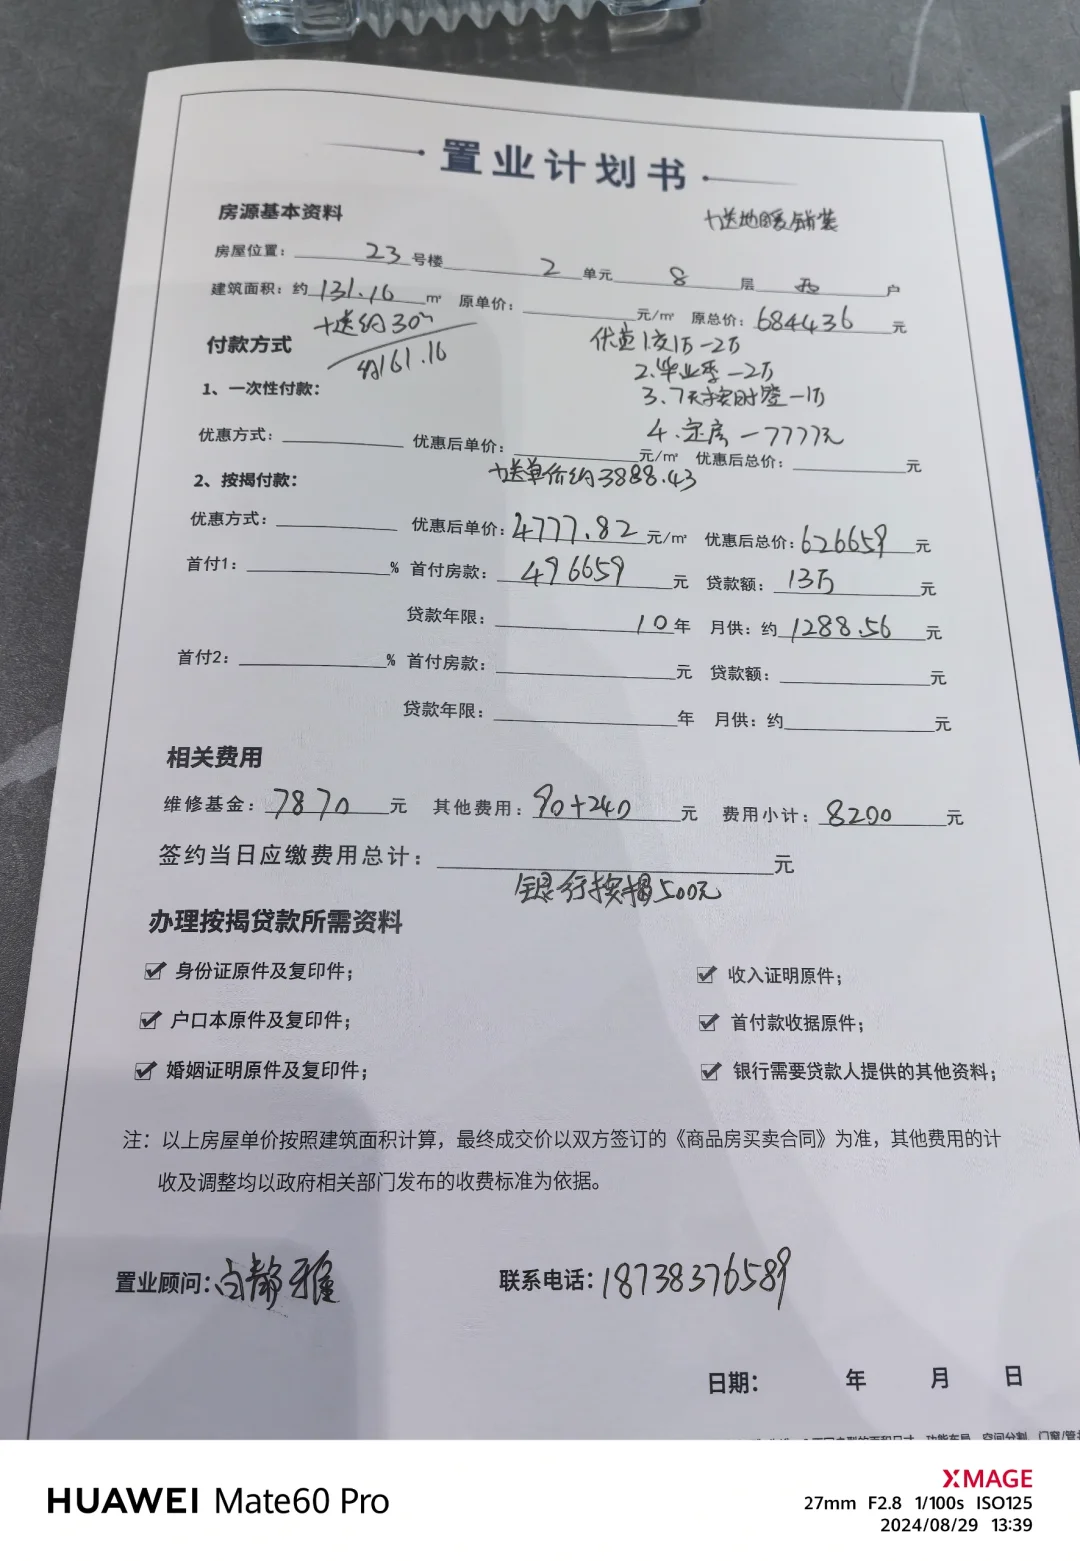 置业计划书
房源基本资料
+送地暖 全拼装
房屋位置：23号楼 2单元 8层 西户
建筑面积：约131.16㎡ 原单价：元/㎡ 原总价：684436元
+送约30㎡
约161.16
付款方式
优惠1.交1万-2万
2.毕业季-2万
3.7天按时签-1万
4.定房-7777元
1、一次性付款：
优惠方式： 优惠后单价：元/㎡ 优惠后总价：元
2、按揭付款：
+送单价约3888.43
优惠方式： 优惠后单价：4777.82元/㎡ 优惠后总价：626659元
首付1：% 首付房款：496659元 贷款额：13万元
贷款年限：10年 月供：约1288.56元
首付2：% 首付房款：元 贷款额：元
贷款年限：年 月供：约元
相关费用
维修基金：7870元 其他费用：90+240元 费用小计：8200元
签约当日应缴费用总计：元
银行按揭500元
办理按揭贷款所需资料
身份证原件及复印件；
收入证明原件；
户口本原件及复印件；
首付款收据原件；
婚姻证明原件及复印件；
银行需要贷款人提供的其他资料；
注：以上房屋单价按照建筑面积计算，最终成交价以双方签订的《商品房买卖合同》为准，其他费用的计
收及调整均以政府相关部门发布的收费标准为依据。
置业顾问：白静雅 联系电话：18738376589
日期： 年 月 日
HUAWEI Mate60 Pro
XMAGE
27mm F2.8 1/100s ISO125
2024/08/29 13:39